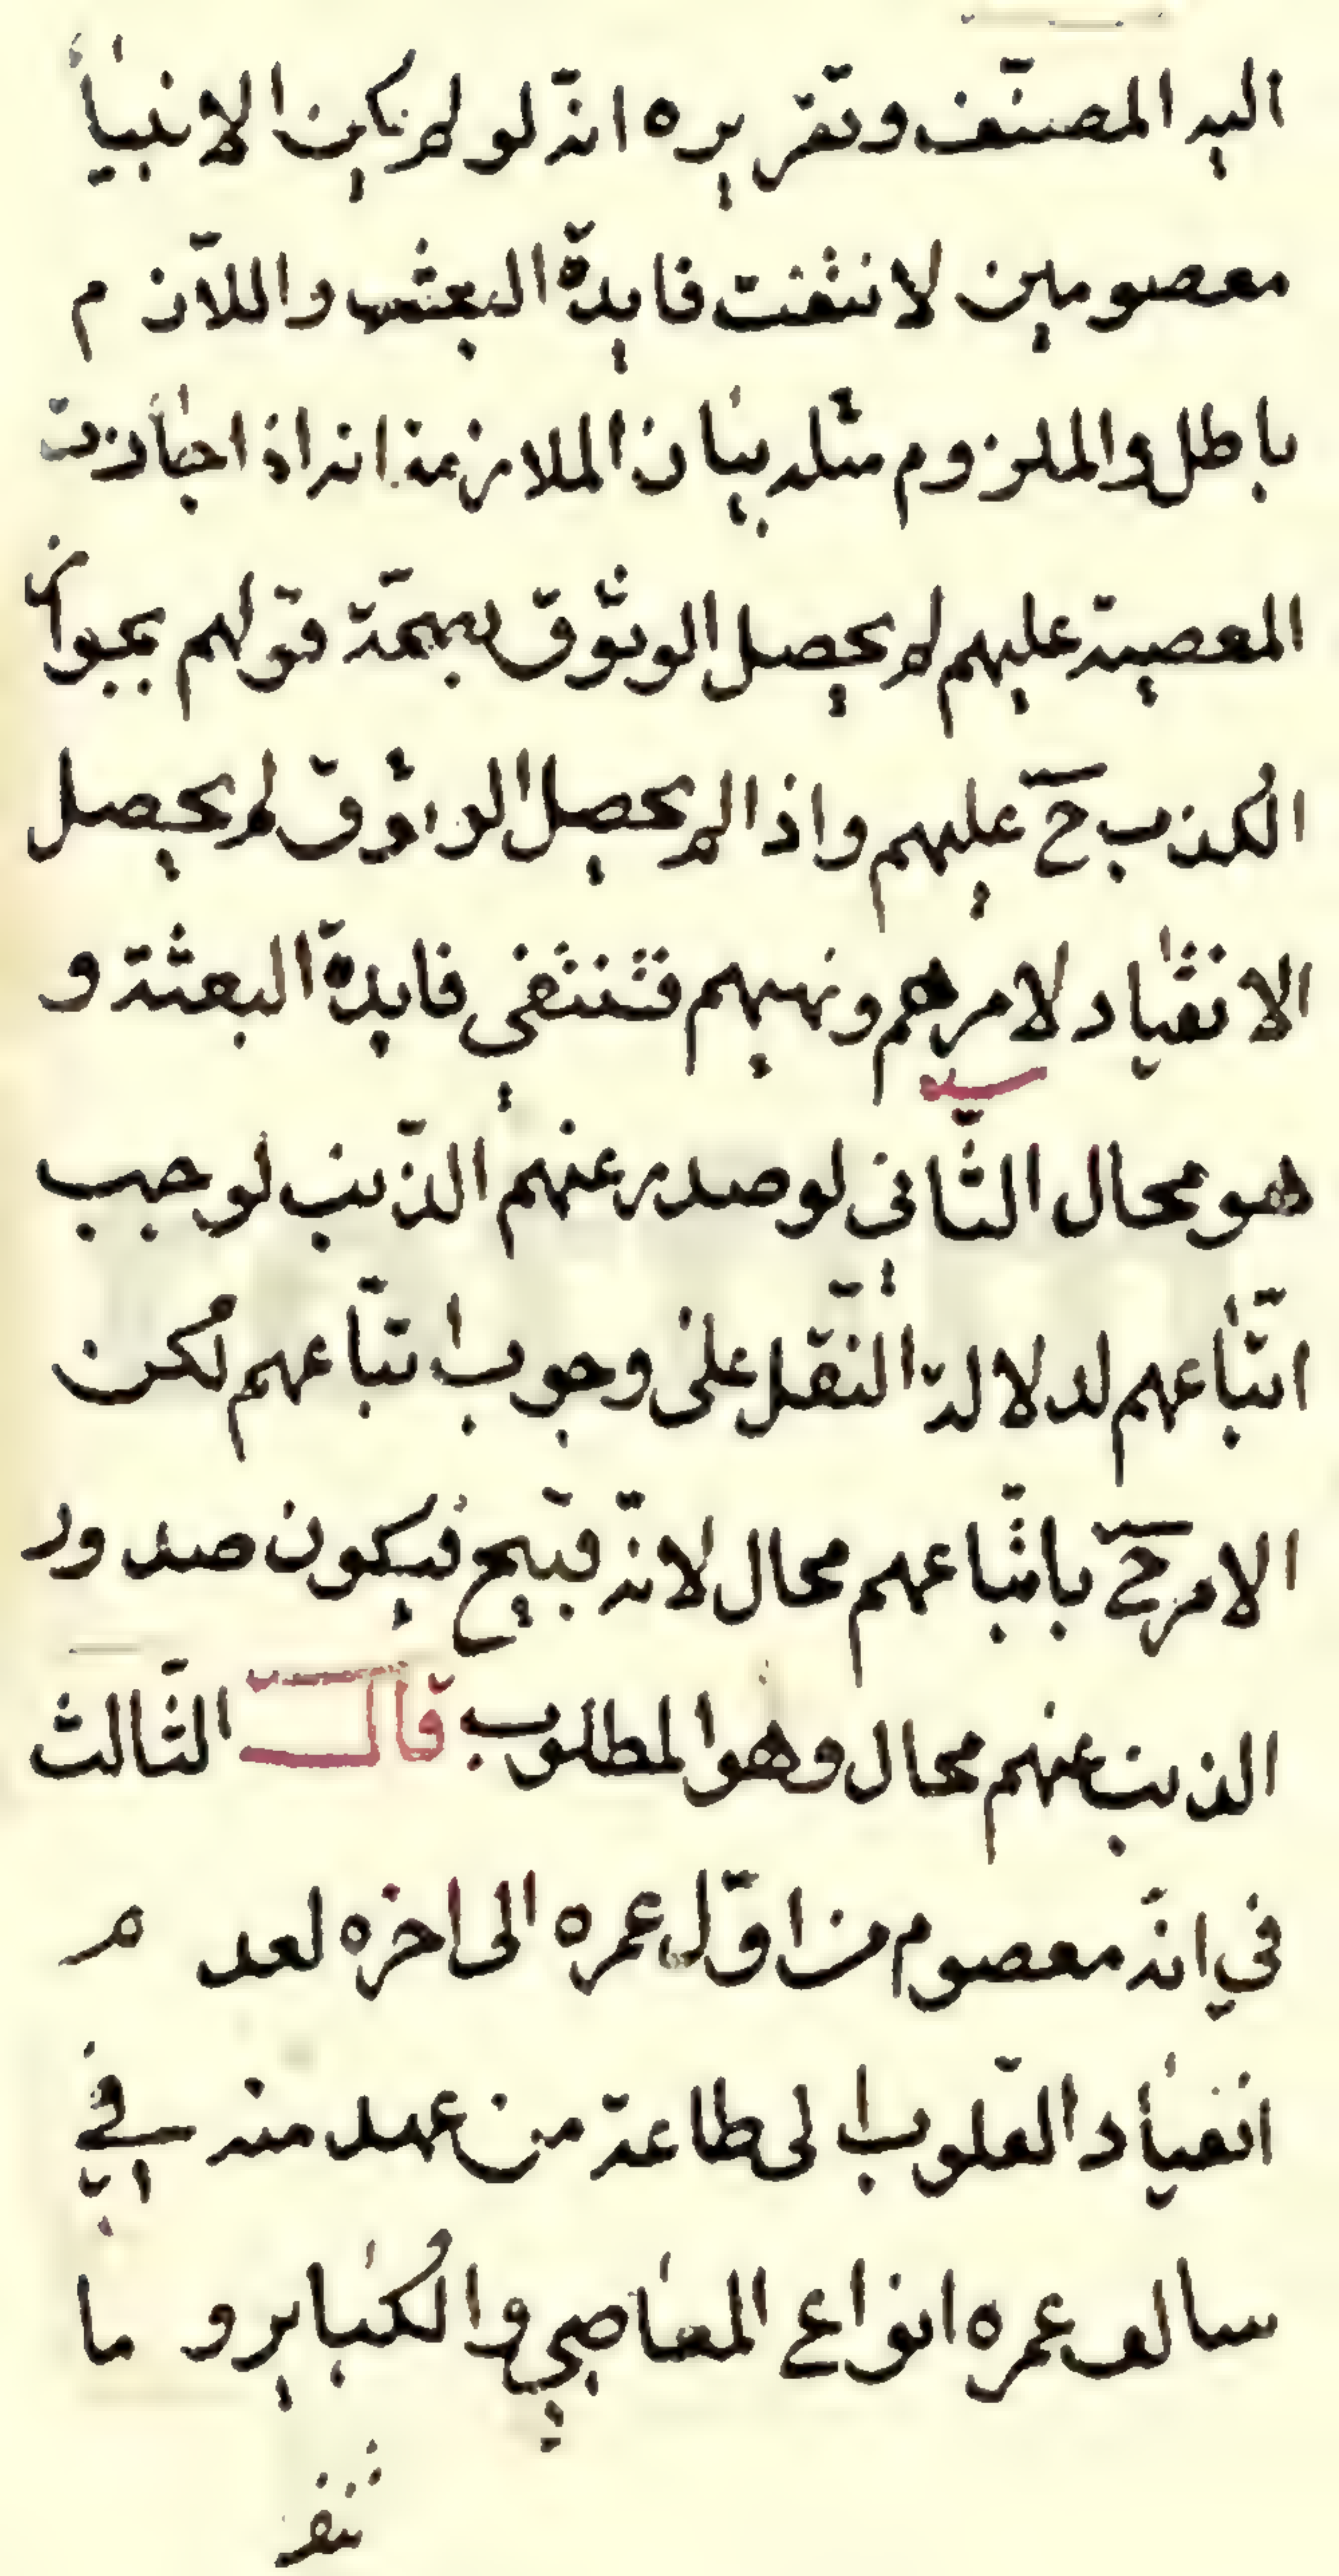 اليه المصنّف وتقريره انّه لو لم يكن الانبياء
معصومين لانتفت فايدة البعثه واللازم
باطل والملزوم مثله بيان الملازمة انه اذا جازت
المعصية عليهم لم يحصل الوثوق بصحّة قولهم بجواز
الكذب حَ عليهم واذا لم يحصل الوثوق لم يحصل
الانقياد لامرهم ونهيهم فتنتفي فايدة البعثة و
هو محال الثّاني لو صدر عنهم الذّنب لوجب
اتّباعهم لدلالة النّقل على وجوب اتّباعهم لكن
الامر حَ باتّباعهم محال لانّه قبيح فيكون صدور
الذنب عنهم محال وهو المطلوب قال الثّالث
في انّه معصوم من اوّل عمره الى اخره لعدم
انقياد القلوب الى طاعة من عهد منه في
سالف عمره انواع المعاصي والكباير وما
تنفر